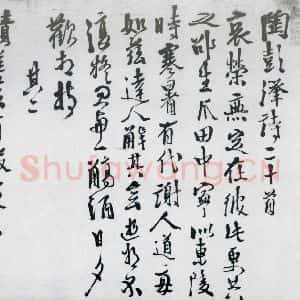 陶彭澤詩二十首
衰榮無定在彼此更共
之邵生瓜田中寧似東陵
時寒暑有代謝人道每
如茲達人解其會逝將不
復疑忽與一觴酒日夕
歡相持
其二
積善云有報
Shufawang.cn